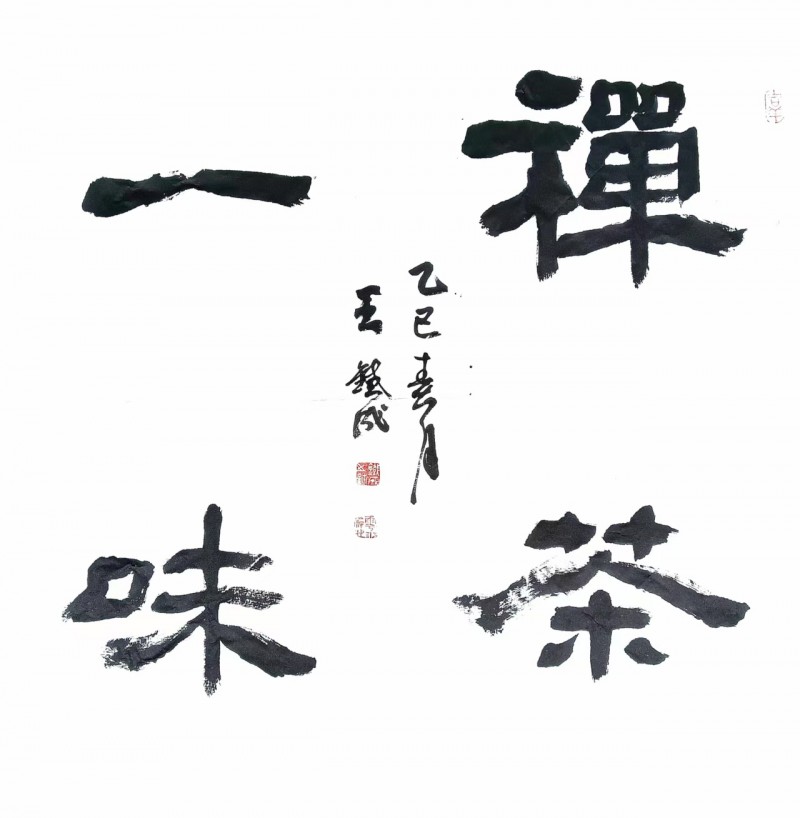 禪茶
一味
乙巳春月
王鐵成